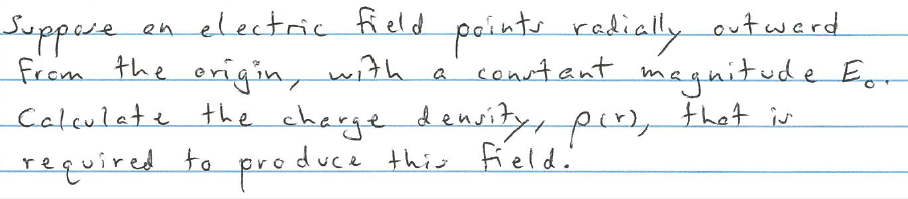 Suppose an electric field points radially outward
from the origin, with a constant magnitude E₀.
Calculate the charge density, ρ(r), that is
required to produce this field.